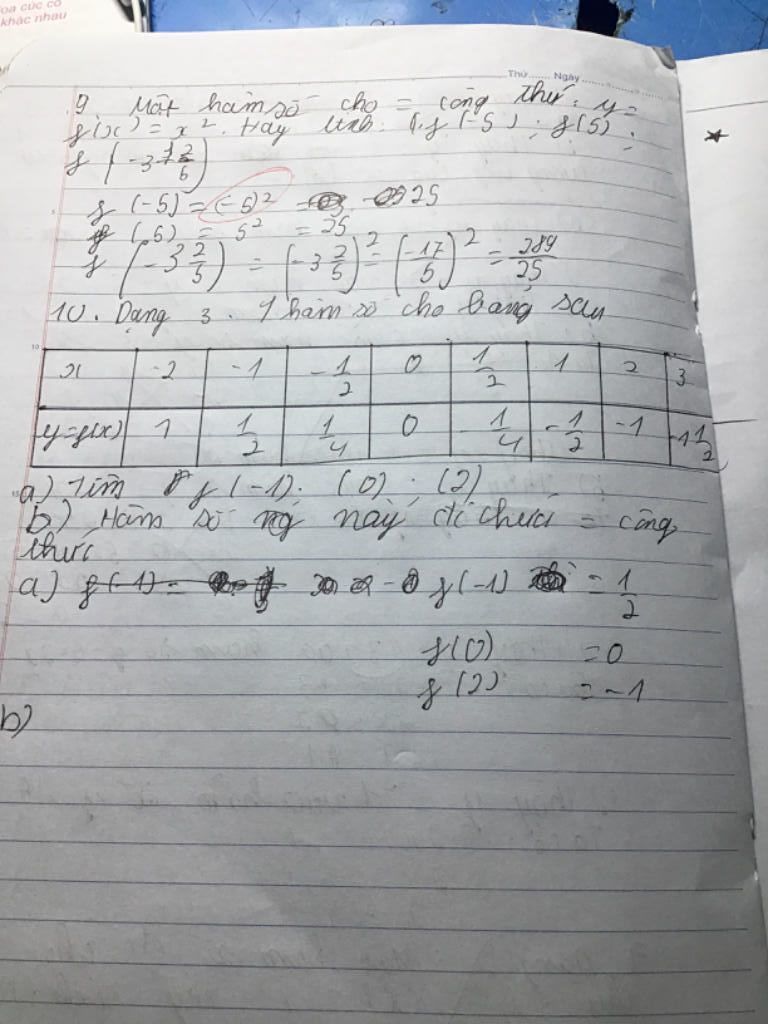 oa cúc có
khác nhau
Thứ...... Ngày......
9. Một hàm số cho = công thứ: y=
f(x) = x². Hãy tính: f(-5); f(5);
f(-3 2/5)
f(-5) = (-5)² = 25
f(5) = 5² = 25
f(-3 2/5) = (-3 2/5)² = (-17/5)² = 289/25
10. Dạng 3. 1 hàm số cho bảng sau
x -2 -1 -1/2 0 1/2 1 2 3
y=f(x) 1 1/2 1/4 0 -1/4 -1/2 -1 -1 1/2
a) Tìm f(-1); (0); (2)
b) Hàm số này đc = công
thức
a) f(-1) = 1/2
f(0) = 0
f(2) = -1
b)